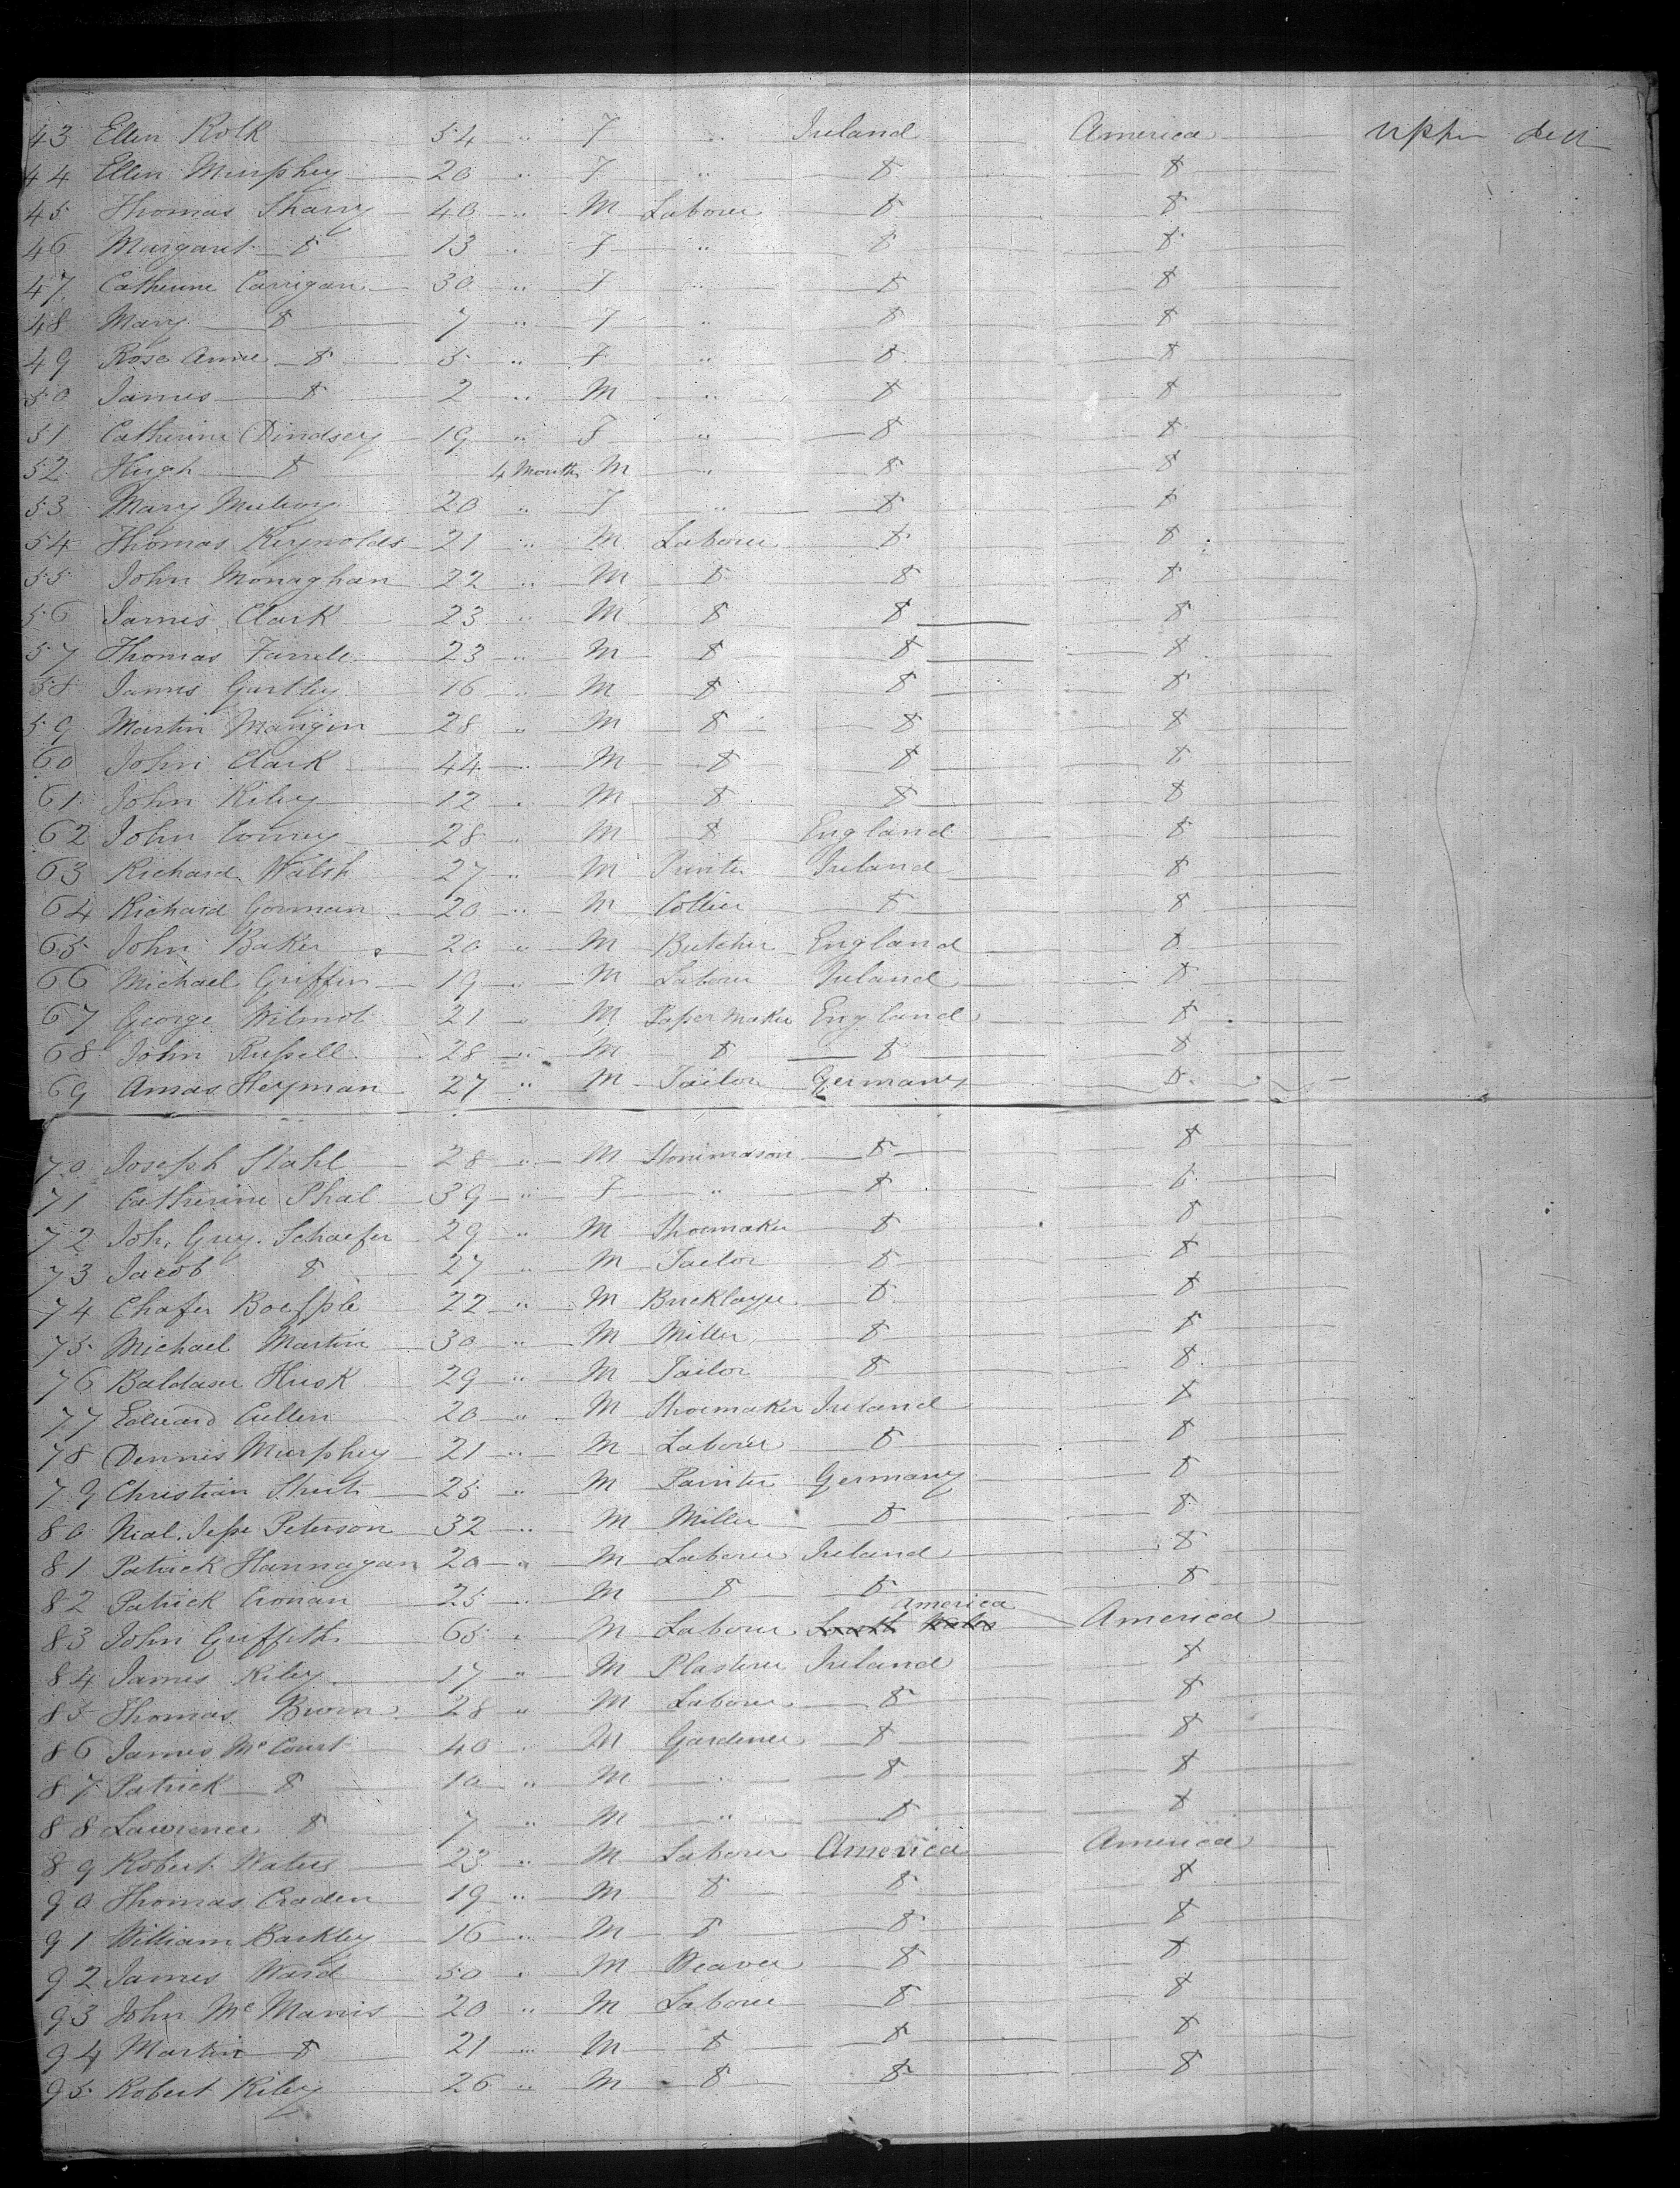 43 Ellen Rolk 54 " F " Ireland America upper deck
44 Ellen Murphey 20 " F " do do
45 Thomas Sharry 40 " M Laborer do do
46 Margaret do 13 " F " do do
47 Catherine Carrigan 30 " F " do do
48 Mary do 7 " F " do do
49 Rose Anne do 5 " F " do do
50 James do 2 " M " do do
51 Catherine Dindsey 19 " F " do do
52 Hugh do 4 Months M " do do
53 Mary 20 " F " do do
54 Thomas Reynolds 21 " M Laborer do do
55 John Monaghan 22 " M do do do
56 James Clark 23 " M do do do
57 Thomas Farrele 23 " M do do do
58 James Gartley 16 " M do do do
59 Martin Mangin 28 " M do do do
60 John Clark 44 " M do do do
61 John Riley 12 " M do do do
62 John 28 " M do England do
63 Richard Walsh 27 " M Printer Ireland do
64 Richard Gorman 20 " M Collier do do
65 John Baker 20 " M Butcher England do
66 Michael Griffin 19 " M Laborer Ireland do
67 George Wilmot 21 " M Paper Maker England do
68 John Russell 28 " M do do do
69 Amas Heyman 27 " M Tailor Germany do
70 Joseph Stahl 28 " M Stonemason do do
71 Catherine Phal 39 " F " do do
72 Joh. Greg. Schaefer 29 " M Shoemaker do do
73 Jacob do 27 " M Tailor do do
74 Chafer Boepple 22 " M Bricklayer do do
75 Michael Martin 30 " M Miller do do
76 Baldaser Husk 29 " M Tailor do do
77 Edward Cullen 20 " M Shoemaker Ireland do
78 Dennis Murphey 21 " M Laborer do do
79 Christian 25 " M Painter Germany do
80 Nial. Jesse Peterson 32 " M Miller do do
81 Patrick Hannagan 20 " M Laborer Ireland do
82 Patrick Cronan 25 " M do do do
83 John Griffith 65 " M Laborer South Wales America America
84 James Riley 17 " M Plasterer Ireland do
85 Thomas Burn 28 " M Laborer do do
86 James McCourt 40 " M Gardener do do
87 Patrick do 10 " M " do do
88 Lawrence do 7 " M " do do
89 Robert Waters 23 " M Laborer America America
90 Thomas Craden 19 " M do do do
91 William Barkley 16 " M do do do
92 James Ward 50 " M Weaver do do
93 John McManis 20 " M Laborer do do
94 Martin do 21 " M do do do
95 Robert Riley 26 " M do do do